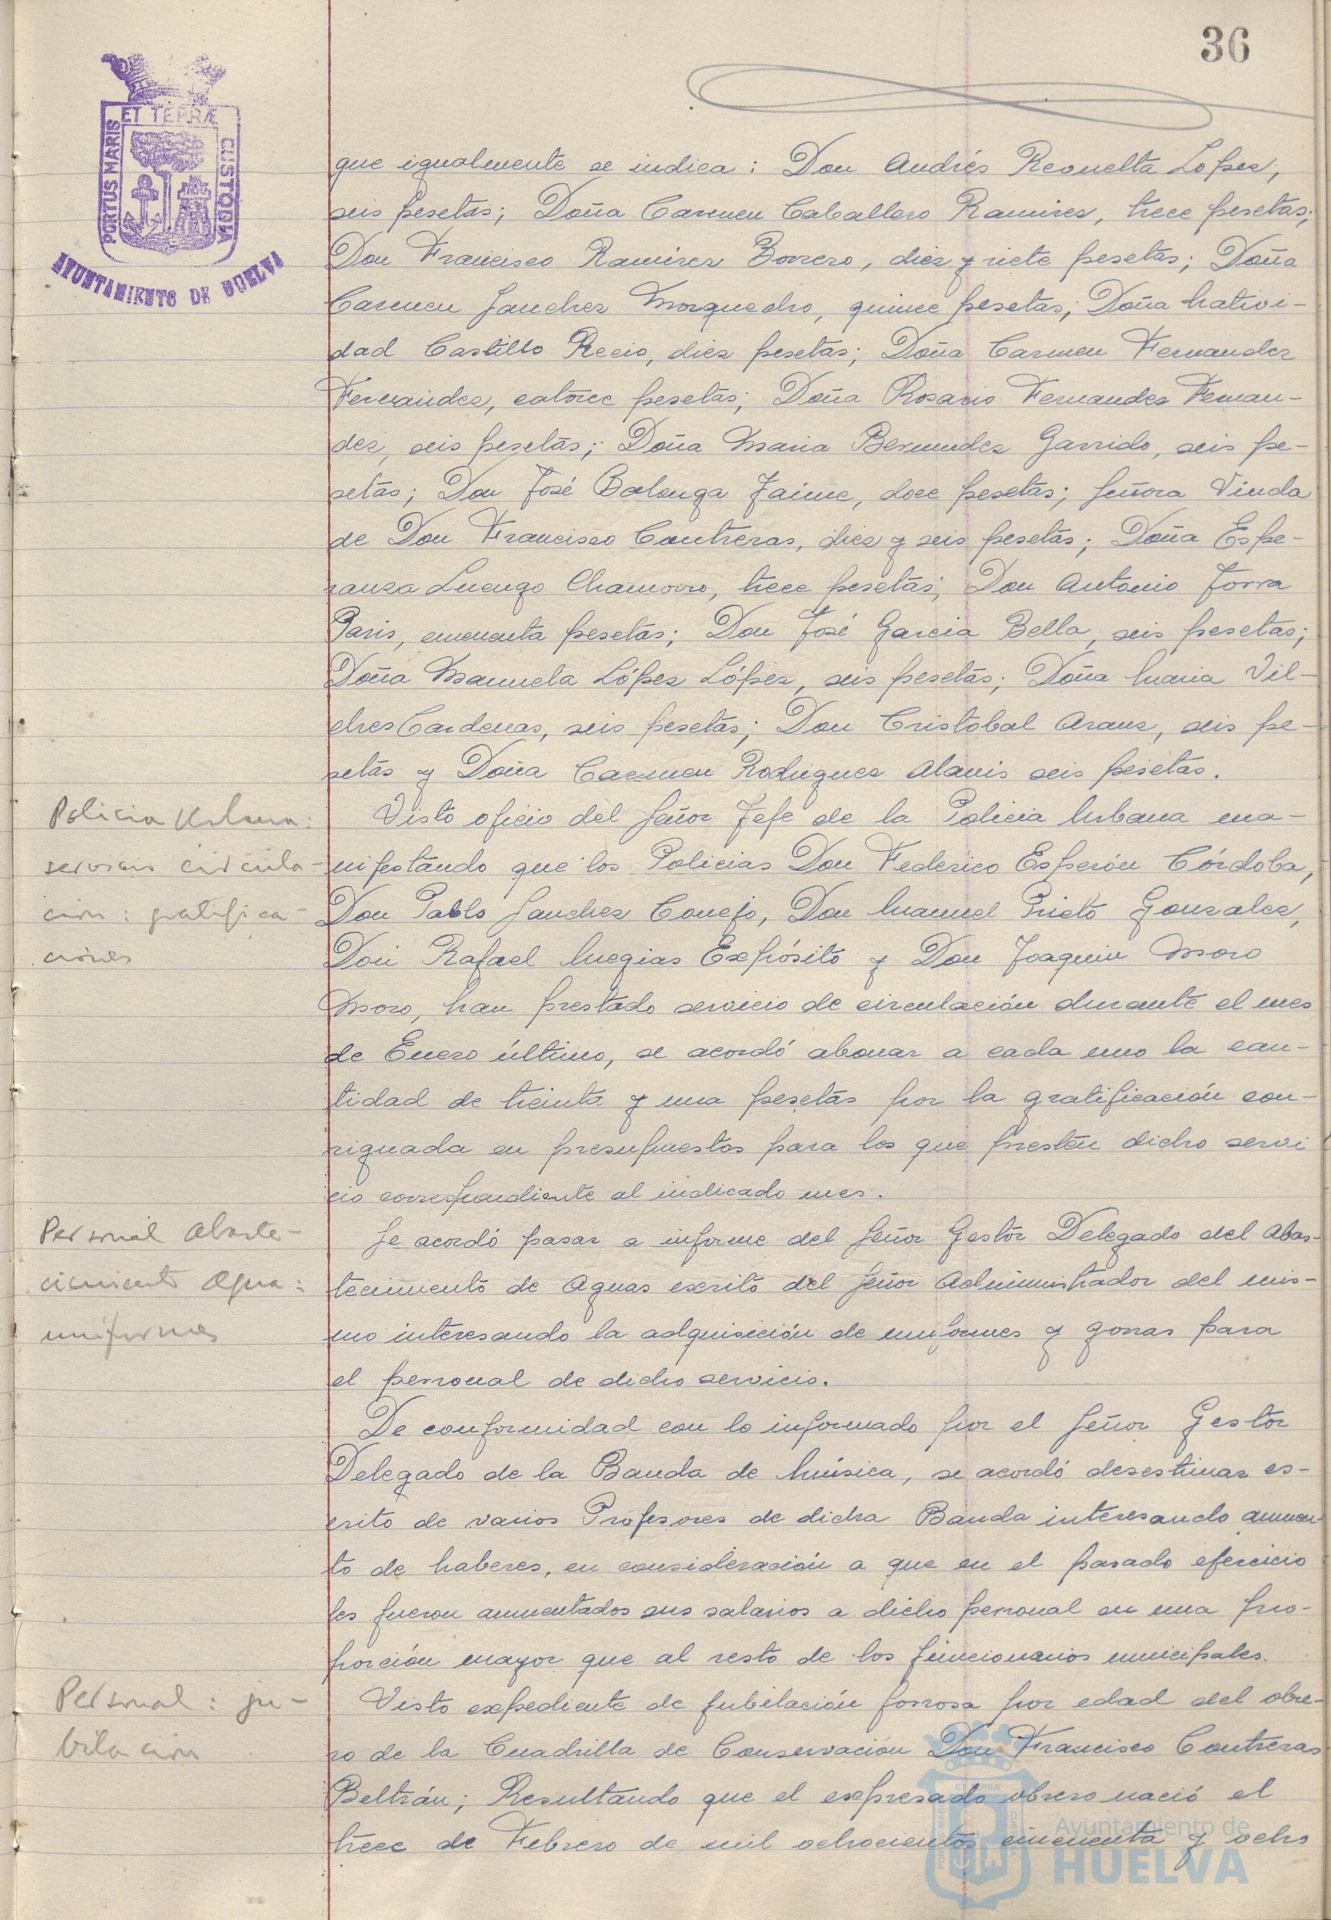 36
PORTUS MARIS ET TERRÆ CUSTODIA
AYUNTAMIENTO DE HUELVA
que igualmente se indica: Don Andrés Revuelta Lopez,
seis pesetas; Doña Carmen Caballero Ramirez, trece pesetas;
Don Francisco Ramirez Borrero, diez y siete pesetas; Doña
Carmen Sanchez Mosquedro, quince pesetas; Doña Nativi-
dad Castillo Recio, diez pesetas; Doña Carmen Fernandez
Fernandez, catorce pesetas; Doña Rosario Fernandez Fernan-
dez, seis pesetas; Doña Maria Bermudez Garrido, seis pe-
setas; Don José Balonga Jaime, doce pesetas; Señora Viuda
de Don Francisco Contreras, diez y seis pesetas; Doña Espe-
ranza Luengo Chamorro, trece pesetas; Don Antonio Jorva
Paris, cincuenta pesetas; Don José Garcia Bella, seis pesetas;
Doña Manuela López López, seis pesetas; Doña Maria Vil-
ches Cardenas, seis pesetas; Don Cristobal Arauz, seis pe-
setas y Doña Carmen Rodriguez Alanis seis pesetas.
Policia Urbana:
servicio circula-
cion: gratifica-
ciones
Visto oficio del Señor Jefe de la Policia Urbana ma-
nifestando que los Policias Don Federico Esperón Córdoba,
Don Pablo Sanchez Conejo, Don Manuel Prieto Gonzalez,
Don Rafael Megias Expósito y Don Joaquin Moro
Moro, han prestado servicio de circulación durante el mes
de Enero último, se acordó abonar a cada uno la can-
tidad de treinta y una pesetas por la gratificación con-
signada en presupuestos para los que presten dicho servi
cio correspondiente al indicado mes.
Personal Abaste-
cimiento Agua:
uniformes
Se acordó pasar a informe del Señor Gestor Delegado del Abas-
tecimiento de Aguas escrito del Señor Administrador del mis-
mo interesando la adquisición de uniformes y gorras para
el personal de dicho servicio.
De conformidad con lo informado por el Señor Gestor
Delegado de la Banda de Música, se acordó desestimar es-
crito de varios Profesores de dicha Banda interesando aumen-
to de haberes, en consideración a que en el pasado ejercicio
les fueron aumentados sus salarios a dicho personal en una pro-
porción mayor que al resto de los funcionarios municipales.
Personal: ju-
bilacion
Visto expediente de jubilación forzosa por edad del obre-
ro de la Cuadrilla de Conservación Don Francisco Contreras
Beltrán; Resultando que el expresado obrero nació el
trece de Febrero de mil ochocientos cincuenta y ocho
Ayuntamiento de
HUELVA